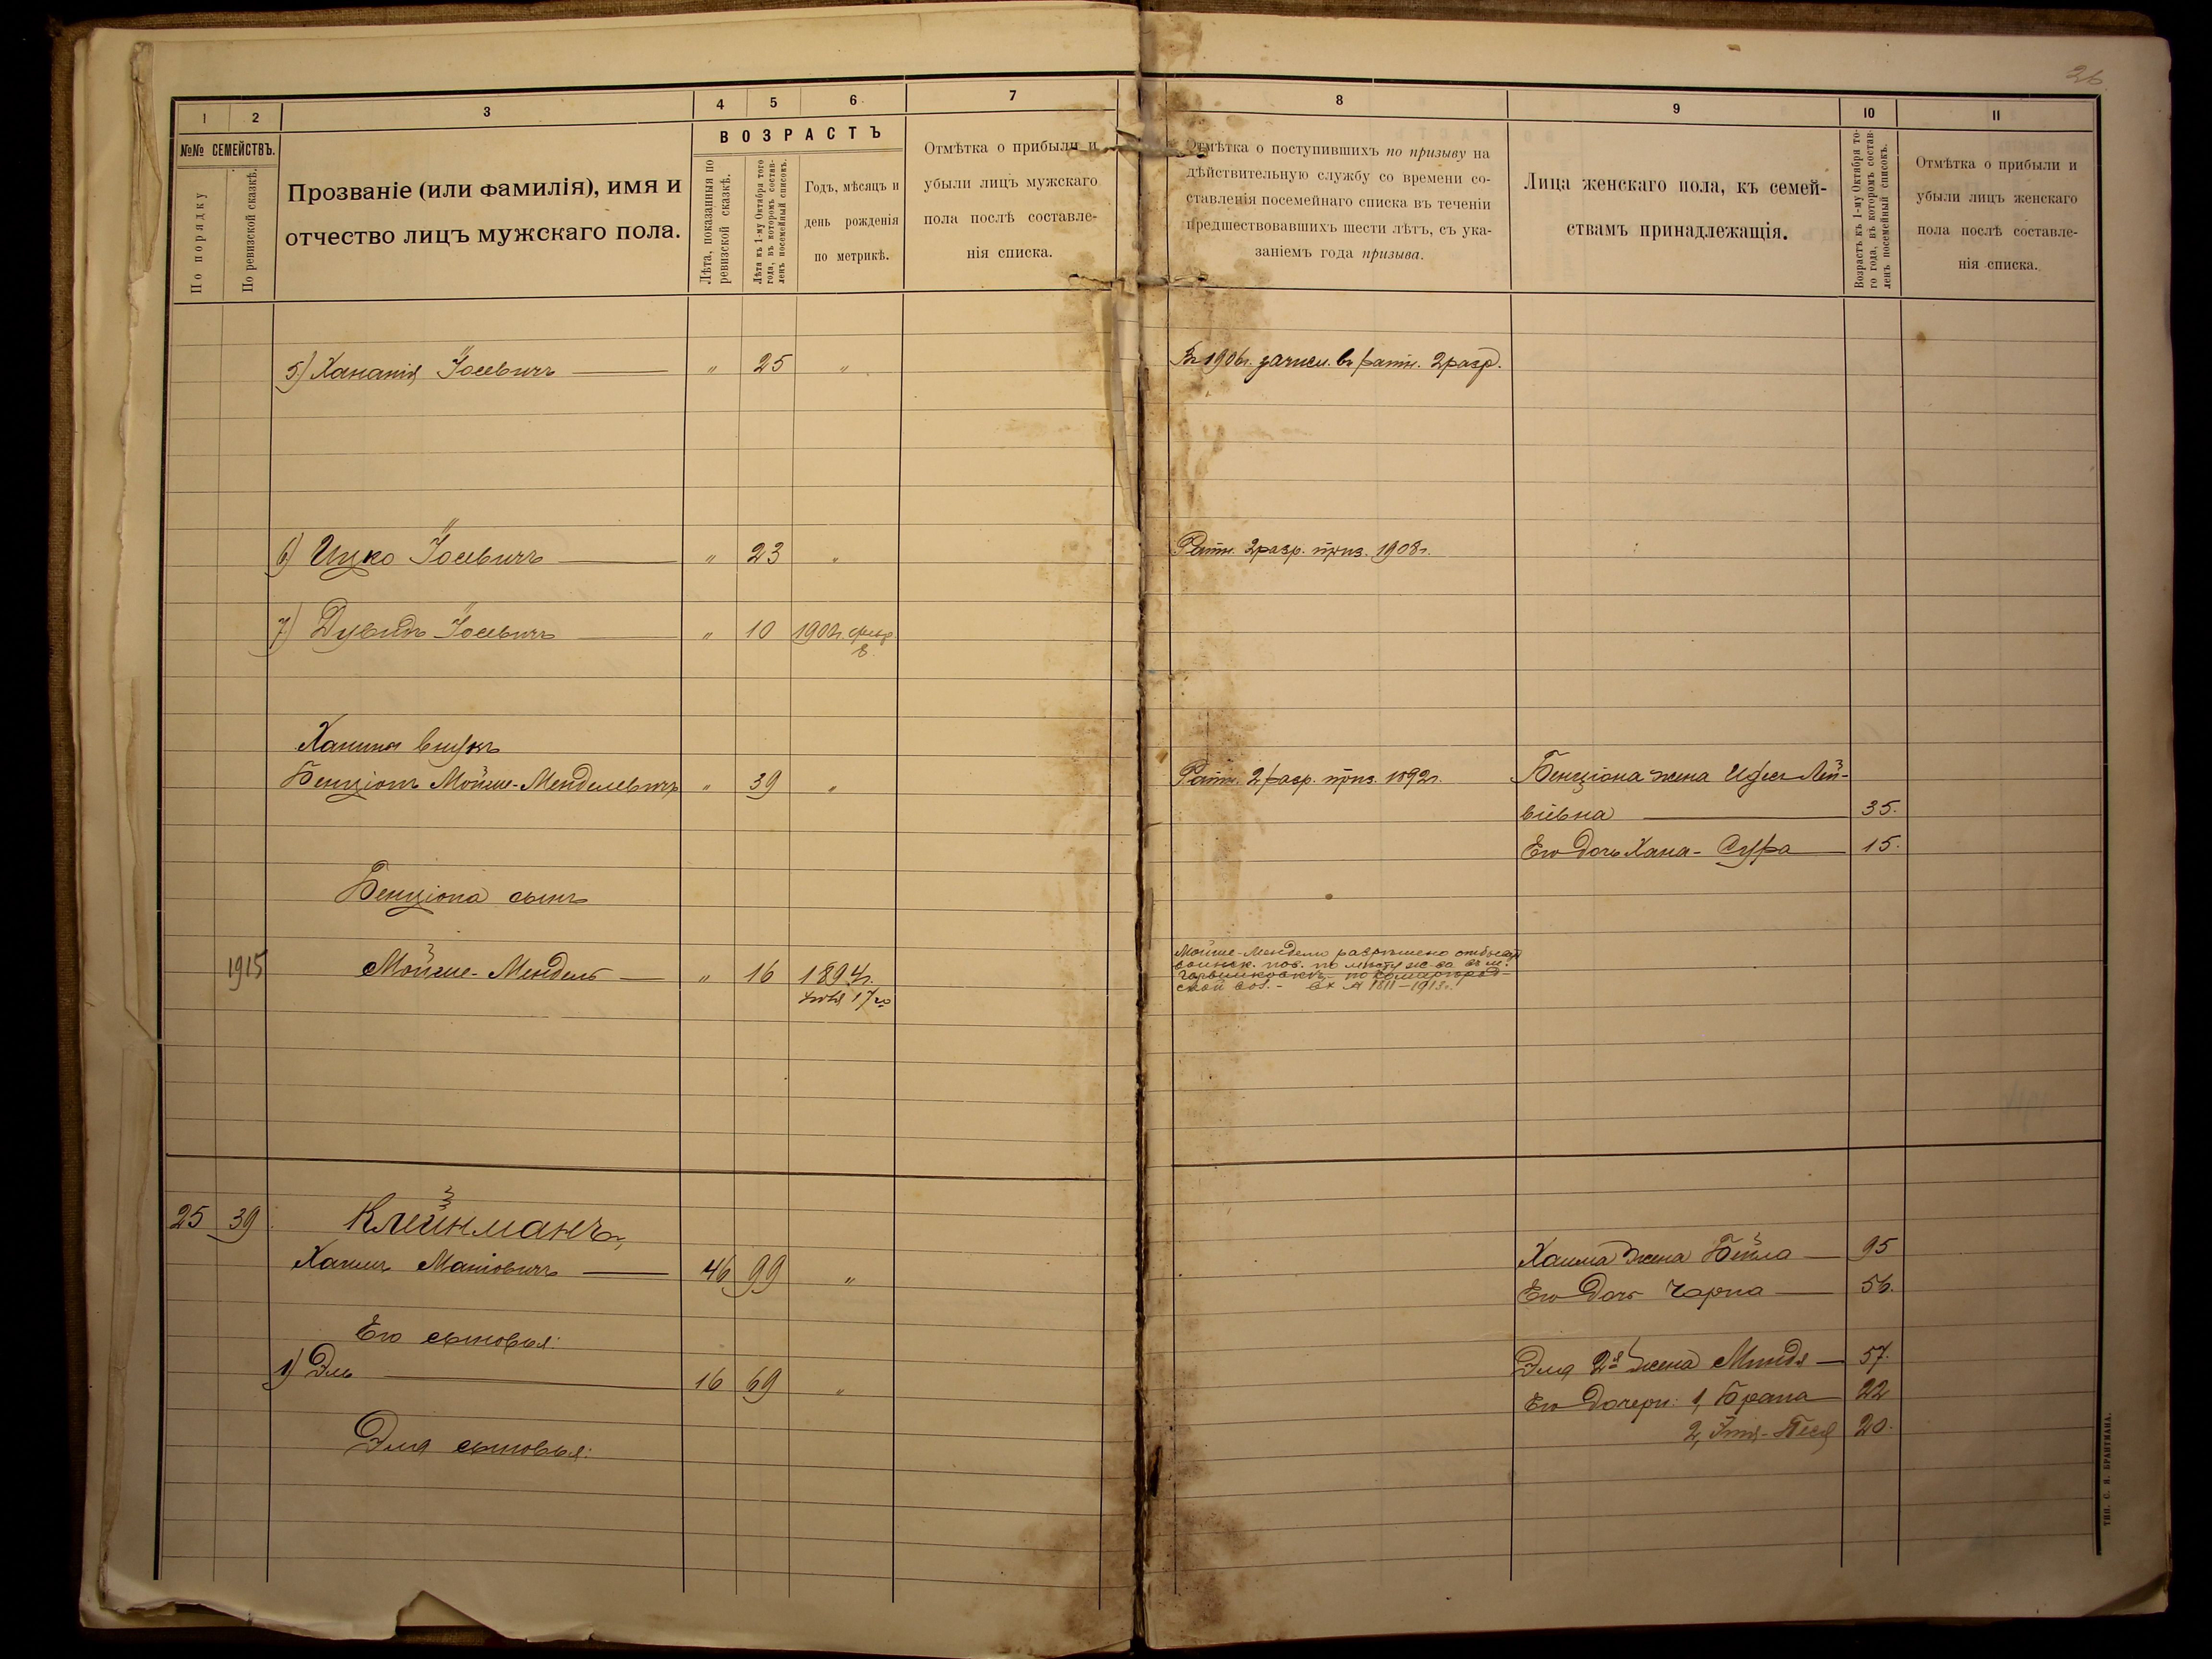 26
1 2 3 4 5 6 7
№№ СЕМЕЙСТВЪ.
По порядку
По ревизской сказкѣ.
Прозваніе (или фамилія), имя и
отчество лицъ мужскаго пола.
ВОЗРАСТЪ
Лѣта, показанныя по
ревизской сказкѣ.
Лѣта къ 1-му Октября того
года, въ которомъ состав-
ленъ посемейный списокъ.
Годъ, мѣсяцъ и
день рожденія
по метрикѣ.
Отмѣтка о прибыли и
убыли лицъ мужскаго
пола послѣ составле-
нія списка.
5) Хананія Іосевичъ — " 25 "
6) Ицко Іосевичъ — " 23 "
7) Дувидъ Іосевичъ — " 10
8.
Хаима внукъ
Бенціонъ Мойше-Менделевичъ " 39 "
Бенціона сынъ
1915 Мойше-Мендель — " 16 1894г.
17го
25 39 Клейнманъ,
Хаимъ Маніовичъ — 46 99 "
Его сыновья:
1) Эль — 16 69 "
Эля сыновья:
8 9 10 11
Отмѣтка о поступившихъ по призыву на
дѣйствительную службу со времени со-
ставленія посемейнаго списка въ теченіи
предшествовавшихъ шести лѣтъ, съ ука-
заніемъ года призыва.
Лица женскаго пола, къ семей-
ствамъ принадлежащія.
Возрастъ къ 1-му Октября то-
го года, въ которомъ состав-
ленъ посемейный списокъ.
Отмѣтка о прибыли и
убыли лицъ женскаго
пола послѣ составле-
нія списка.
Въ 1906г. зачисл. въ ратн. 2 разр.
Ратн. 2 разр. приз. 1908г.
Ратн. 2 разр. приз. 1892г. Бенціона жена Лей-
віевна — 35.
Его дочь Хана-Сура — 15.
Мойше-Менделю разрѣшено отбывать
воинск. пов. по мѣсту ж-ва въ м.
ской вол. - Вх № 1811-1913г.
Хаима жена Бейла — 95
Его дочь Чарна — 56.
Эля 2я жена Миндя — 57.
Его дочери: 1, Брана 22
2, Песя 20.
ТИП. С. Я. БРАНТМАНА.